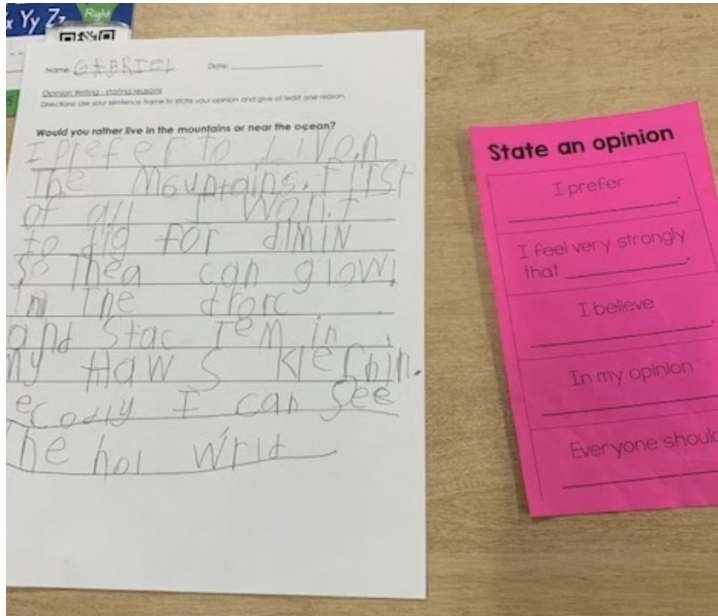 Yy Zz
Right
Name: GABRIEL Date:
Opinion Writing - stating reasons
Directions: Use your sentence frame to state your opinion and give at least one reason.
Would you rather live in the mountains or near the ocean?
I prefer to Liv on
The Mountains. First
of all I Wont
to dig for dimin
So Thea can glow
in The drorc
and Stac Tem in
my Haws
ecodly I can See
he hol Wrld
State an opinion
I prefer
.
I feel very strongly
that .
I believe
.
In my opinion
Everyone should